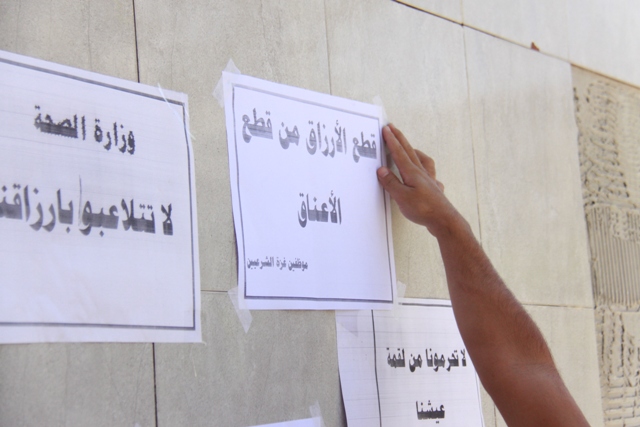 قطع الأرزاق من قطع
الأعناق
موظفين غزة الشرعيين
وزارة الصحة
لا تتلاعبو بارزاقنا
لا تحرمونا من لقمة
عيشنا